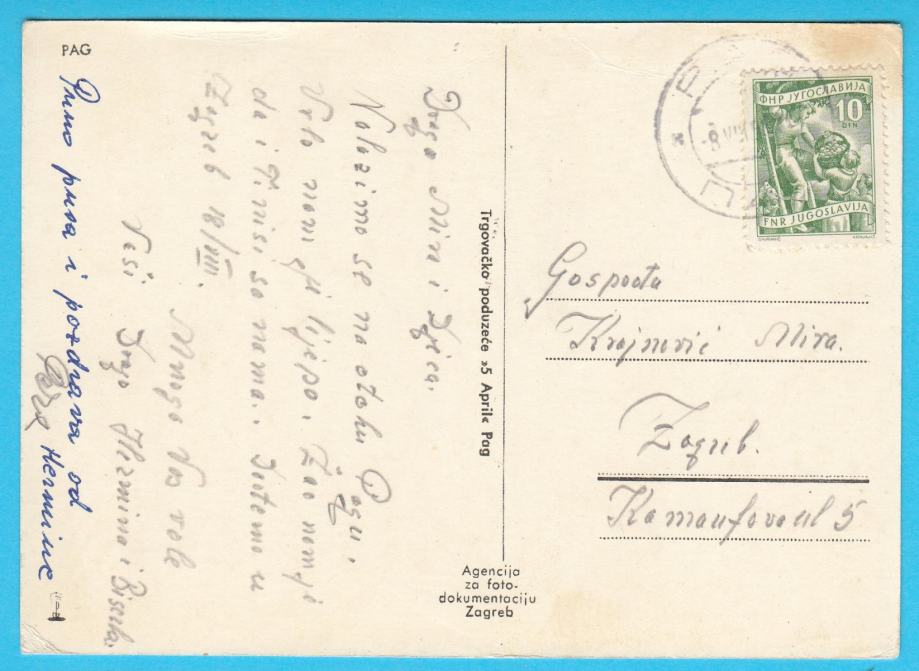 PAG
Draga Mira i Djeca.
Nalazimo se na otoku Pagu,
Vrlo nam je lijepo. Žao nam je
da i Ti nisi sa nama. Idemo u
Zagreb 18/VIII.
Mnogo Vas vole
Teši Drago Hermina i Biserka.
Puno pusa i pozdrava od
Hermine
Trgovačko poduzeće »5 April« Pag
Agencija
za foto-
dokumentaciju
Zagreb
ФНР ЈУГОСЛАВИЈА
10
DIN
FNR JUGOSLAVIJA
8 VIII
Gospođa
Krajnović Mira.
Zagreb.
Kamaufova ul 5